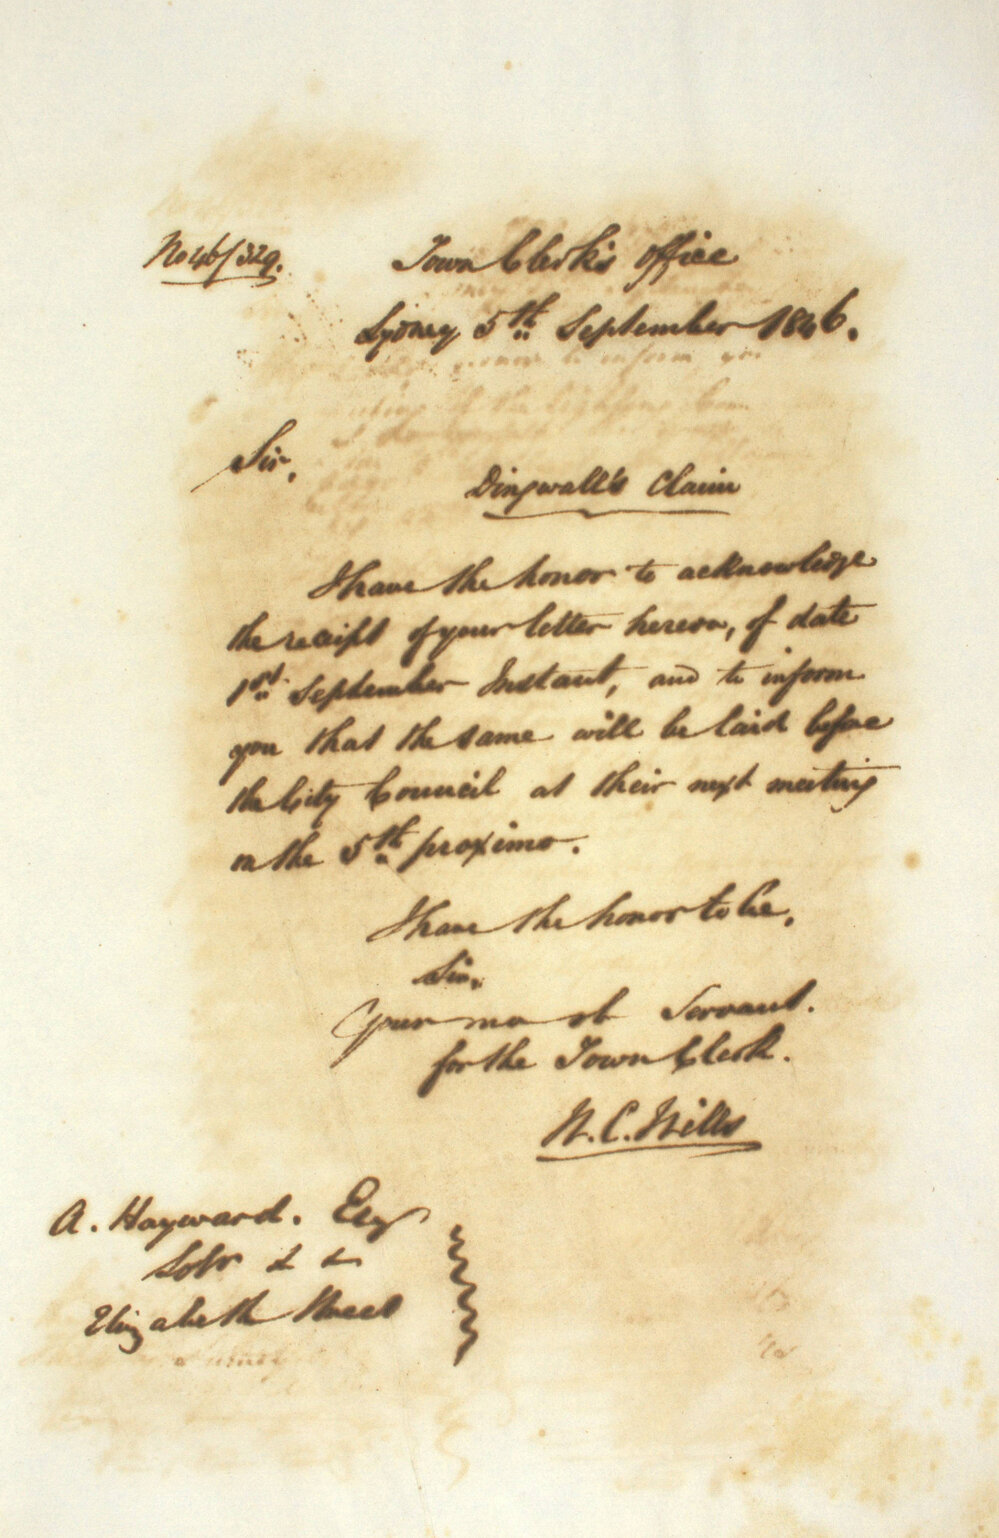 No 46/329.
Town Clerk's Office
Sydney 5th September 1846.
Sir,
Dingwall's Claim
I have the honor to acknowledge
the receipt of your letter hereon, of date
1st September Instant, and to inform
you that the same will be laid before
the City Council at their next meeting
on the 5th proximo.
I have the honor to be,
Sir,
Your mo ob Servant.
for the Town Clerk.
W. C. Wills
A. Hayward. Esq
Solr & &
Elizabeth Street